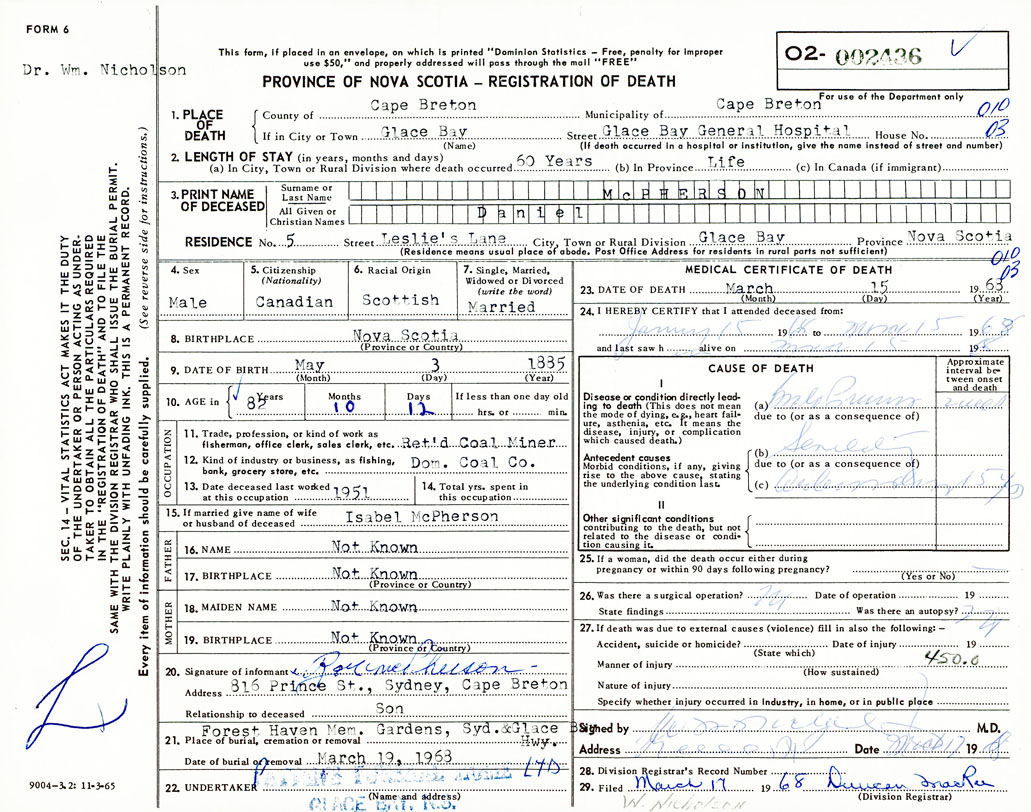 FORM 6
Dr. Wm. Nicholson
This form, if placed in an envelope, on which is printed "Dominion Statistics – Free, penalty for improper
use $50," and properly addressed will pass through the mail "FREE"
PROVINCE OF NOVA SCOTIA – REGISTRATION OF DEATH
O2- 002436
For use of the Department only
010
03
1. PLACE OF DEATH County of Cape Breton Municipality of Cape Breton
If in City or Town Glace Bay Street Glace Bay General Hospital House No.
(Name) (If death occurred in a hospital or institution, give the name instead of street and number)
2. LENGTH OF STAY (in years, months and days)
(a) In City, Town or Rural Division where death occurred 60 Years (b) In Province Life (c) In Canada (if immigrant)
3. PRINT NAME OF DECEASED Surname or Last Name McPHERSON
All Given or Christian Names Daniel
RESIDENCE No. 5 Street Leslie's Lane City, Town or Rural Division Glace Bay Province Nova Scotia
(Residence means usual place of abode. Post Office Address for residents in rural parts not sufficient)
010
03
4. Sex Male
5. Citizenship (Nationality) Canadian
6. Racial Origin Scottish
7. Single, Married, Widowed or Divorced (write the word) Married
8. BIRTHPLACE Nova Scotia
(Province or Country)
9. DATE OF BIRTH May 3 1885
(Month) (Day) (Year)
10. AGE in 82 Years Months 10 Days 12 If less than one day old hrs. or min.
OCCUPATION
11. Trade, profession, or kind of work as fisherman, office clerk, sales clerk, etc. Ret'd Coal Miner
12. Kind of industry or business, as fishing, bank, grocery store, etc. Dom. Coal Co.
13. Date deceased last worked at this occupation 1951
14. Total yrs. spent in this occupation
15. If married give name of wife or husband of deceased Isabel McPherson
FATHER
16. NAME Not Known
17. BIRTHPLACE Not Known
(Province or Country)
MOTHER
18. MAIDEN NAME Not Known
19. BIRTHPLACE Not Known
(Province or Country)
20. Signature of informant
Address 816 Prince St., Sydney, Cape Breton
Relationship to deceased Son
Forest Haven Mem. Gardens, Syd.&Glace Bay
Hwy.
21. Place of burial, cremation or removal
Date of burial or removal March 19, 1968
22. UNDERTAKER LTD
(Name and address)
GLACE BAY, N.S.
MEDICAL CERTIFICATE OF DEATH
23. DATE OF DEATH March 15 1968
(Month) (Day) (Year)
24. I HEREBY CERTIFY that I attended deceased from:
19 to 1968
and last saw h alive on 19
CAUSE OF DEATH
Approximate interval between onset and death
I
Disease or condition directly leading to death (This does not mean the mode of dying, e.g., heart failure, asthenia, etc. It means the disease, injury, or complication which caused death.)
(a)
due to (or as a consequence of)
Antecedent causes
Morbid conditions, if any, giving rise to the above cause, stating the underlying condition last.
(b) Senility
due to (or as a consequence of)
(c)
II
Other significant conditions contributing to the death, but not related to the disease or condition causing it.
25. If a woman, did the death occur either during pregnancy or within 90 days following pregnancy?
(Yes or No)
26. Was there a surgical operation? Date of operation 19
State findings Was there an autopsy?
27. If death was due to external causes (violence) fill in also the following: –
Accident, suicide or homicide? Date of injury 19
(State which)
Manner of injury 450.0
(How sustained)
Nature of injury
Specify whether injury occurred in Industry, in home, or in public place
Signed by M.D.
Address Date March 17 1968
28. Division Registrar's Record Number
29. Filed March 17 1968 Duncan MacRae
W. Nicholson (Division Registrar)
SEC. 14 – VITAL STATISTICS ACT MAKES IT THE DUTY
OF THE UNDERTAKER OR PERSON ACTING AS UNDER-
TAKER TO OBTAIN ALL THE PARTICULARS REQUIRED
IN THE "REGISTRATION OF DEATH" AND TO FILE THE
SAME WITH THE DIVISION REGISTRAR WHO SHALL ISSUE THE BURIAL PERMIT.
WRITE PLAINLY WITH UNFADING INK. THIS IS A PERMANENT RECORD.
Every item of information should be carefully supplied. (See reverse side for instructions.)
9004-3.2: 11-3-65